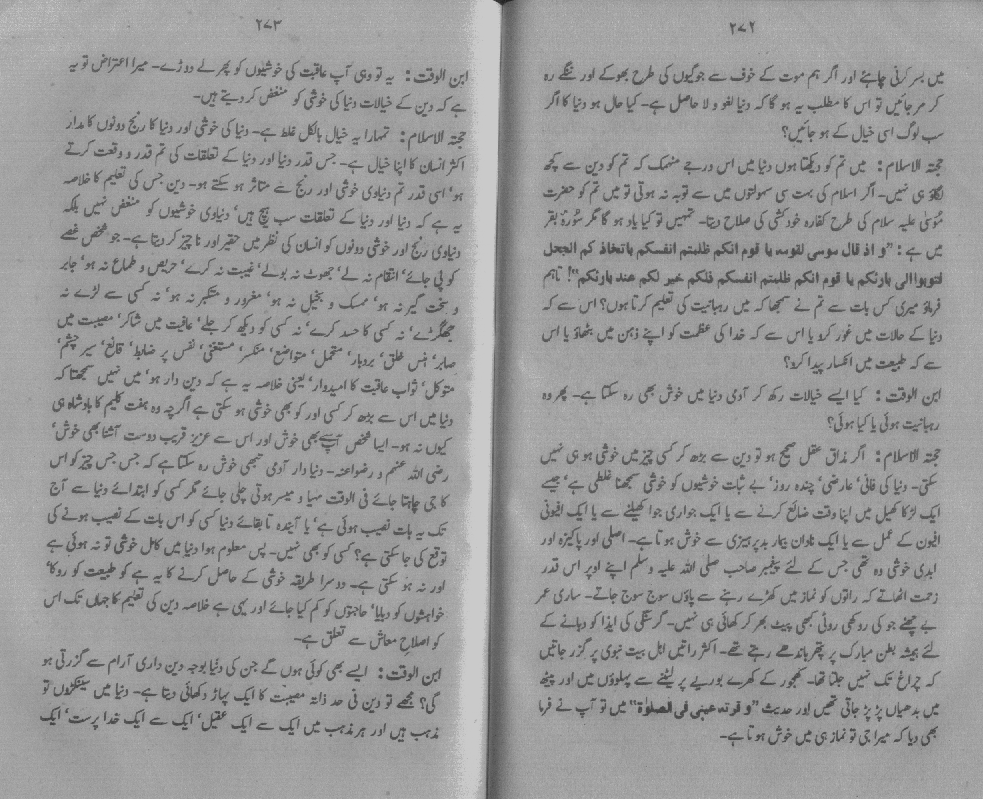 ۲۷۲
میں بسر کرنی چاہئے اور اگر ہم موت کے خوف سے جوگیوں کی طرح بھوکے اور ننگے رہ
کر مر جائیں تو اس کا مطلب یہ ہو گا کہ دنیا لغو و لا حاصل ہے۔ کیا حال ہو دنیا کا اگر
سب لوگ اسی خیال کے ہو جائیں؟
حجتہ الاسلام: میں تم کو دیکھتا ہوں دنیا میں اس درجے منہمک کہ تم کو دین سے کچھ
لگاؤ ہی نہیں۔ اگر اسلام کی بہت سی سہولتوں میں سے توبہ نہ ہوتی تو میں تم کو حضرت
موسٰی علیہ سلام کی طرح کفارہ خودکشی کی صلاح دیتا۔ تمہیں تو کیا یاد ہو گا مگر سورۃ بقر
میں ہے: "و اذ قال موسی لقومہ یا قوم انکم ظلمتم انفسکم باتخاذ کم العجل
فتوبوا الی بارئکم یا قوم انکم ظلمتم انفسکم فلکم خیر لکم عند بارئکم"! تاہم
فرماؤ میری کس بات سے تم نے سمجھا کہ میں رہبانیت کی تعلیم کرتا ہوں؟ اس سے کہ
دنیا کے حالات میں غور کرو یا اس سے کہ خدا کی عظمت کو اپنے ذہن میں بٹھاؤ یا اس
سے کہ طبیعت میں انکسار پیدا کرو؟
ابن الوقت: کیا ایسے خیالات رکھ کر آدمی دنیا میں خوش بھی رہ سکتا ہے۔ پھر وہ
رہبانیت ہوئی یا کیا ہوئی؟
حجتہ الاسلام: اگر مذاق عقل صحیح ہو تو دین سے بڑھ کر کسی چیز میں خوشی ہو ہی نہیں
سکتی۔ دنیا کی فانی‘ عارضی‘ چندہ روز‘ بے ثبات خوشیوں کو خوشی سمجھنا غلطی ہے‘ جیسے
ایک لڑکا کھیل میں اپنا وقت ضائع کرنے سے یا ایک جواری جوا کھیلنے سے یا ایک افیونی
افیون کے عمل سے یا ایک نادان بیمار بدپرہیزی سے خوش ہوتا ہے۔ اصلی اور پاکیزہ اور
ابدی خوشی وہ تھی جس کے لئے پیغمبر صاحب صلی اللہ علیہ وسلم اپنے اوپر اس قدر
زحمت اٹھاتے کہ راتوں کو نماز میں کھڑے رہنے سے پاؤں سوج سوج جاتے۔ ساری عمر
بے چھنے جو کی روکھی روٹی کبھی پیٹ بھر کر کھائی ہی نہیں۔ گرسنگی کی ایذا کو دبانے کے
لئے ہمیشہ بطن مبارک پر پتھر باندھے رہتے تھے۔ اکثر راتیں اہل بیت نبوی پر گزر جاتیں
کہ چراغ تک نہیں جلتا تھا۔ کھجور کے کھرے بوریے پر لیٹنے سے پہلوؤں میں اور پیٹھ
میں بدھیاں پڑ پڑ جاتی تھیں اور حدیث "و قرتہ عینی فی الصلوٰۃ" میں تو آپ نے فرما
بھی دیا کہ میرا جی تو نماز ہی میں خوش ہوتا ہے۔
۲۷۳
ابن الوقت: یہ تو وہی آپ عاقبت کی خوشیوں کو پھر لے دوڑے۔ میرا اعتراض تو یہ
ہے کہ دین کے خیالات دنیا کی خوشی کو منغض کر دیتے ہیں۔
حجتہ الاسلام: تمہارا یہ خیال بالکل غلط ہے۔ دنیا کی خوشی اور دنیا کا رنج دونوں کا مدار
اکثر انسان کا اپنا خیال ہے۔ جس قدر دنیا اور دنیا کے تعلقات کی تم قدر و وقعت کرتے
ہو‘ اسی قدر تم دنیاوی خوشی اور رنج سے متاثر ہو سکتے ہو۔ دین جس کی تعلیم کا خلاصہ
یہ ہے کہ دنیا اور دنیا کے تعلقات سب ہیچ ہیں‘ دنیاوی خوشیوں کو منغض نہیں بلکہ
دنیاوی رنج اور خوشی دونوں کو انسان کی نظر میں حقیر اور ناچیز کر دیتا ہے۔ جو شخص غصے
کو پی جائے‘ انتقام نہ لے‘ جھوٹ نہ بولے‘ غیبت نہ کرے‘ حریص و طماع نہ ہو‘ جابر
و سخت گیر نہ ہو‘ ممسک و بخیل نہ ہو‘ مغرور و متکبر نہ ہو‘ نہ کسی سے لڑے نہ
جھگڑے‘ نہ کسی کا حسد کرے‘ نہ کسی کو دیکھ کر جلے‘ عاقبت میں شاکر‘ مصیبت میں
صابر‘ ہنس خلق‘ بردبار‘ متحمل‘ متواضع‘ منکسر‘ مستغنی‘ نفس پر ضابط‘ قانع‘ سیر چشم‘
متوکل‘ ثواب عاقبت کا امیدوار‘ یعنی خلاصہ یہ ہے کہ دین دار ہو‘ میں نہیں سمجھتا کہ
دنیا میں اس سے بڑھ کر کسی اور کو بھی خوشی ہو سکتی ہے اگرچہ وہ ہفت کلیم کا بادشاہ ہی
کیوں نہ ہو۔ ایسا شخص آپ بھی خوش اور اس سے عزیز قریب دوست آشنا بھی خوش‘
رضی اللہ عنہم و رضواعنہ۔ دنیا دار آدمی تبھی خوش رہ سکتا ہے کہ جس جس چیز کو اس
کا جی چاہتا جائے فی الوقت مہیا و میسر ہوتی چلی جائے مگر کسی کو ابتدائے دنیا سے آج
تک یہ بات نصیب ہوئی ہے‘ یا آیندہ تا بقائے دنیا کسی کو اس بات کے نصیب ہونے کی
توقع کی جا سکتی ہے؟ کسی کو بھی نہیں۔ پس معلوم ہوا دنیا میں کامل خوشی تو نہ ہوئی ہے
اور نہ ہو سکتی ہے۔ دوسرا طریقہ خوشی کے حاصل کرنے کا یہ ہے کو طبیعت کو روکا‘
خواہشوں کو دبایا‘ حاجتوں کو کم کیا جائے اور یہی ہے خلاصہ دین کی تعلیم کا جہاں تک اس
کو اصلاح معاش سے تعلق ہے۔
ابن الوقت: ایسے بھی کوئی ہوں گے جن کی دنیا بوجہ دین داری آرام سے گزرتی ہو
گی؟ مجھے تو دین فی حد ذاتہ مصیبت کا ایک پہاڑ دکھائی دیتا ہے۔ دنیا میں سینکڑوں تو
مذہب ہیں اور ہر مذہب میں ایک سے ایک عقیل‘ ایک سے ایک خدا پرست‘ ایک